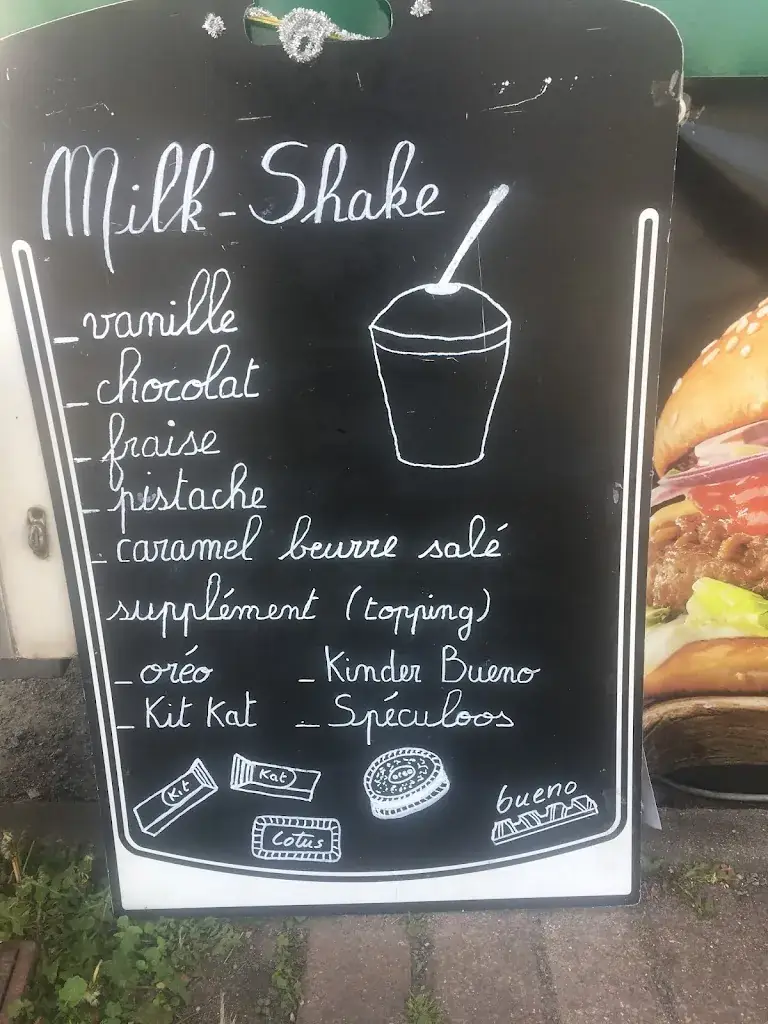 Milk-Shake
_ vanille
_ chocolat
_ fraise
_ pistache
_ caramel beurre salé
supplément (topping)
_ oréo _ Kinder Bueno
_ Kit Kat _ Spéculoos
Kit Kat oreo bueno
Lotus